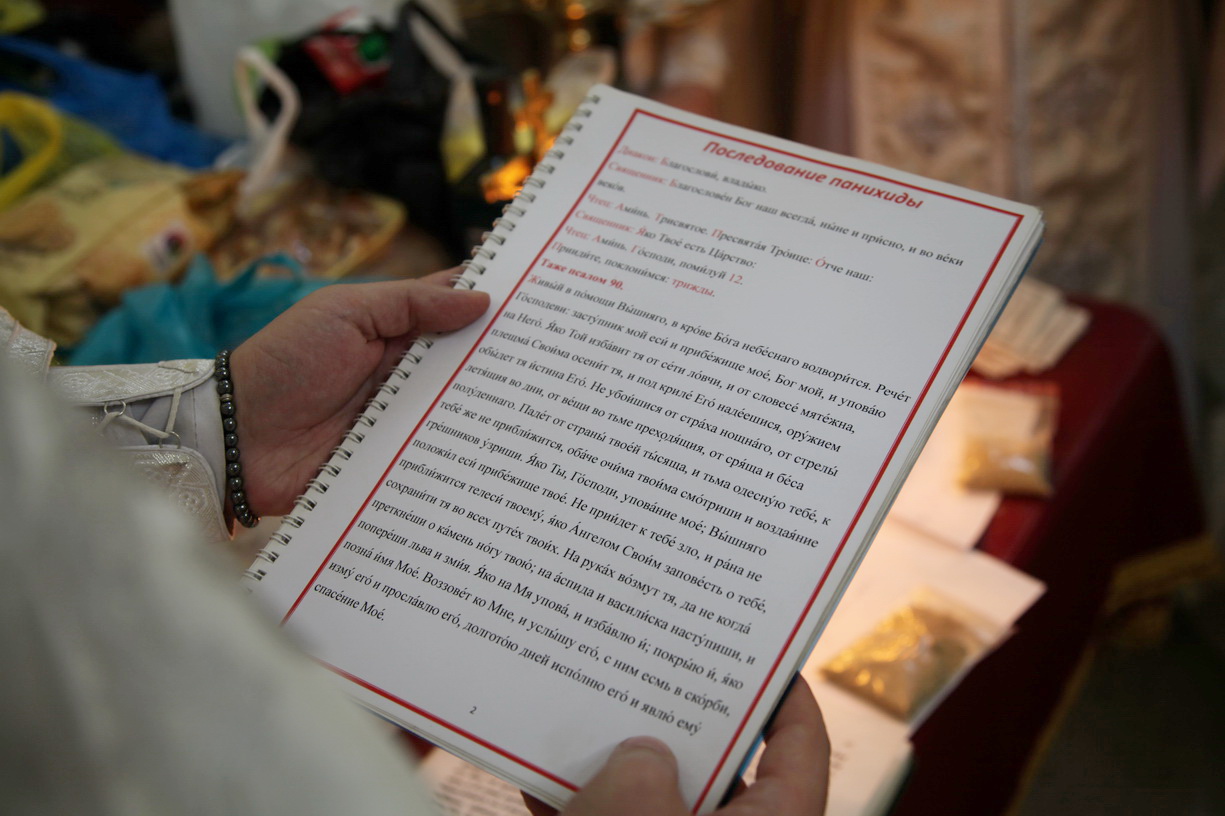 Последование панихиды
Диакон: Благослови́, влады́ко.
Священник: Благослове́н Бог наш всегда́, ны́не и при́сно, и во ве́ки
веко́в.
Чтец: Ами́нь. Трисвято́е. Пресвята́я Тро́ице: О́тче наш:
Священник: Я́ко Твое́ есть Ца́рство:
Чтец: Ами́нь. Го́споди, поми́луй 12.
Прииди́те, поклони́мся: трижды.
Таже псалом 90.
Живы́й в по́мощи Вы́шняго, в кро́ве Бо́га небе́снаго водвори́тся. Рече́т
Го́сподеви: засту́пник мой еси́ и прибе́жище мое́, Бог мой, и упова́ю
на Него́. Я́ко Той изба́вит тя от се́ти ло́вчи, и от словесе́ мяте́жна,
плещма́ Свои́ма осени́т тя, и под криле́ Его́ наде́ешися, ору́жием
обы́дет тя и́стина Его́. Не убои́шися от стра́ха нощна́го, от стрелы́
летя́щия во дни, от ве́щи во тьме преходя́щия, от сря́ща и бе́са
полу́деннаго. Паде́т от страны́ твоея́ ты́сяща, и тьма одесну́ю тебе́, к
тебе́ же не прибли́жится, оба́че очи́ма твои́ма смо́триши и воздая́ние
гре́шников у́зриши. Я́ко Ты, Го́споди, упова́ние мое́; Вы́шняго
положи́л еси́ прибе́жище твое́. Не прии́дет к тебе́ зло, и ра́на не
прибли́жится телеси́ твоему́, я́ко А́нгелом Свои́м запове́сть о тебе́,
сохрани́ти тя во всех путе́х твои́х. На рука́х во́змут тя, да не когда́
преткне́ши о ка́мень но́гу твою́; на а́спида и васили́ска насту́пиши, и
попере́ши льва и зми́я. Я́ко на Мя упова́, и изба́влю и́; покры́ю и́, я́ко
позна́ и́мя Мое́. Воззове́т ко Мне, и услы́шу его́, с ним есмь в ско́рби,
изму́ его́ и просла́влю его́, долгото́ю дней испо́лню его́ и явлю́ ему́
спасе́ние Мое́.
2